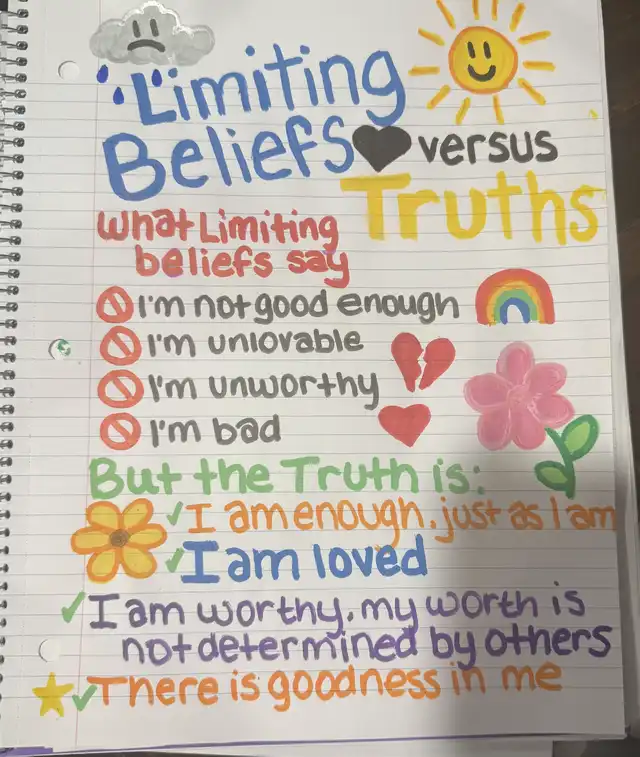 Limiting
Beliefs versus
Truths
What Limiting
beliefs say
I'm not good enough
I'm unlovable
I'm unworthy
I'm bad
But the Truth is:
I am enough. just as I am
I am loved
I am worthy. my worth is
not determined by others
There is goodness in me